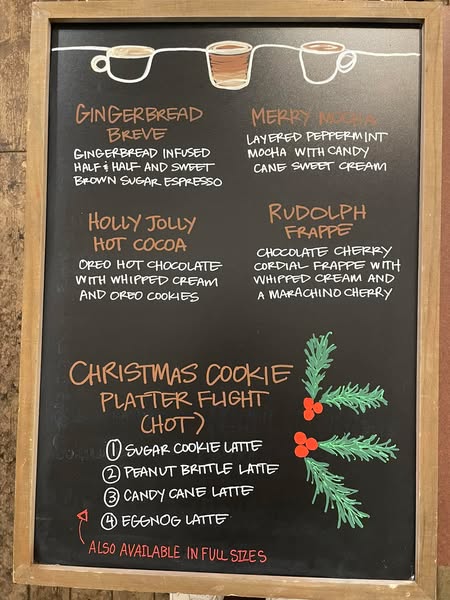 GINGERBREAD
BREVE
GINGERBREAD INFUSED
HALF & HALF AND SWEET
BROWN SUGAR ESPRESSO
MERRY MOCHA
LAYERED PEPPERMINT
MOCHA WITH CANDY
CANE SWEET CREAM
HOLLY JOLLY
HOT COCOA
OREO HOT CHOCOLATE
WITH WHIPPED CREAM
AND OREO COOKIES
RUDOLPH
FRAPPE
CHOCOLATE CHERRY
CORDIAL FRAPPE WITH
WHIPPED CREAM AND
A MARACHINO CHERRY
CHRISTMAS COOKIE
PLATTER FLIGHT
(HOT)
1 SUGAR COOKIE LATTE
2 PEANUT BRITTLE LATTE
3 CANDY CANE LATTE
4 EGGNOG LATTE
ALSO AVAILABLE IN FULL SIZES